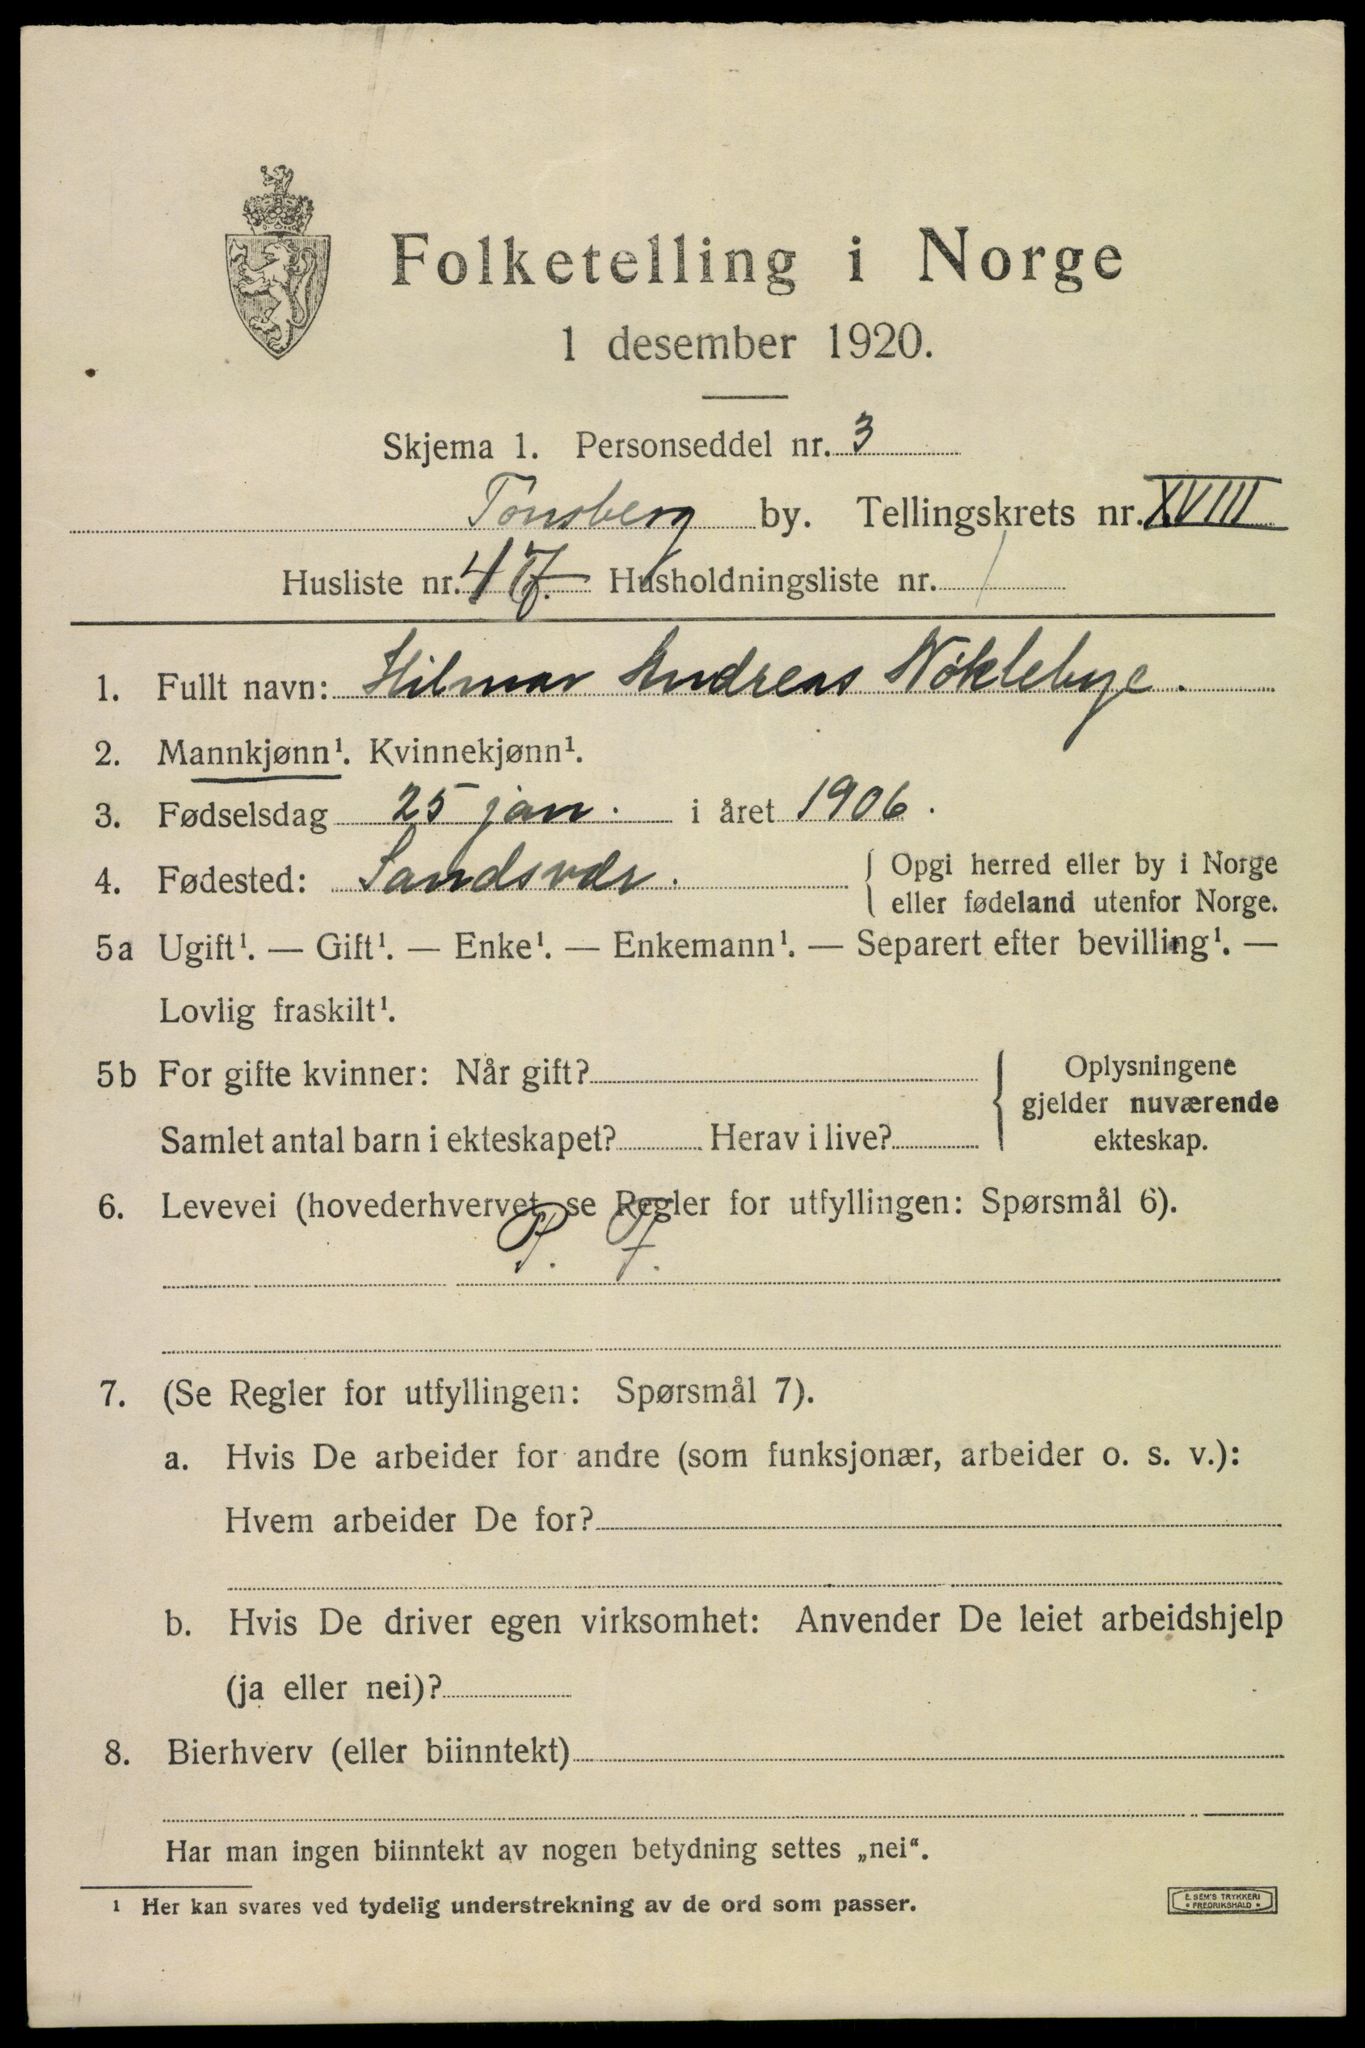 Folketelling i Norge
1 desember 1920.
Skjema 1. Personseddel nr. 3
Tønsberg by. Tellingskrets nr. XVIII
Husliste nr. 47. Husholdningsliste nr. 1
1. Fullt navn: Hilmar Andreas Nøklebye.
2. Mannkjønn¹. Kvinnekjønn¹.
3. Fødselsdag 25 jan. i året 1906.
4. Fødested: Sandsvær. { Opgi herred eller by i Norge
eller fødeland utenfor Norge.
5a Ugift¹. — Gift¹. — Enke¹. — Enkemann¹. — Separert efter bevilling¹. —
Lovlig fraskilt¹.
5b For gifte kvinner: Når gift? { Oplysningene
gjelder nuværende
Samlet antal barn i ekteskapet? Herav i live? ekteskap.
6. Levevei (hovederhvervet, se Regler for utfyllingen: Spørsmål 6).
P. F.
7. (Se Regler for utfyllingen: Spørsmål 7).
a. Hvis De arbeider for andre (som funksjonær, arbeider o. s. v.):
Hvem arbeider De for?
b. Hvis De driver egen virksomhet: Anvender De leiet arbeidshjelp
(ja eller nei)?
8. Bierhverv (eller biinntekt)
Har man ingen biinntekt av nogen betydning settes „nei“.
¹ Her kan svares ved tydelig understrekning av de ord som passer.
E. SEM'S TRYKKERI
• FREDRIKSHALD •